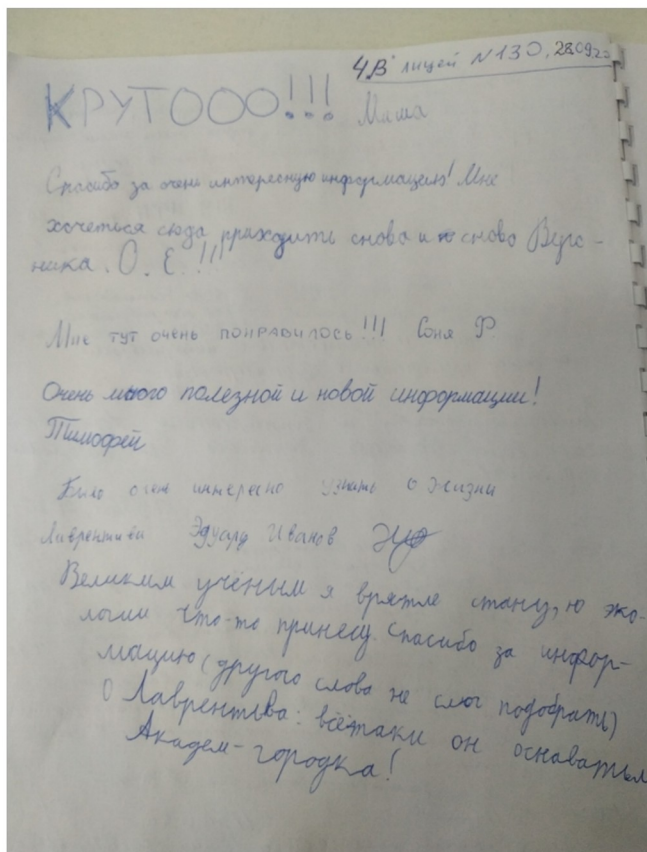 4"В" лицей №130, 28.09.22
КРУТООО!!! Миша
Спасибо за очень интересную информацию! Мне
хочеться сюда приходить снова и снова Веро-
ника. О. Е.!!!
Мне тут очень понравилось!!! Соня Ф.
Очень много полезной и новой информации!
Тимофей
Было очень интересно узнать о жизни
Лаврентьева Эдуард Иванов
Великим учёным я врятле стану, но эко-
логии что-то принесу. Спасибо за инфор-
мацию (другого слова не смог подобрать)
О Лаврентьва: всё-таки он основатель
Академ-городка!